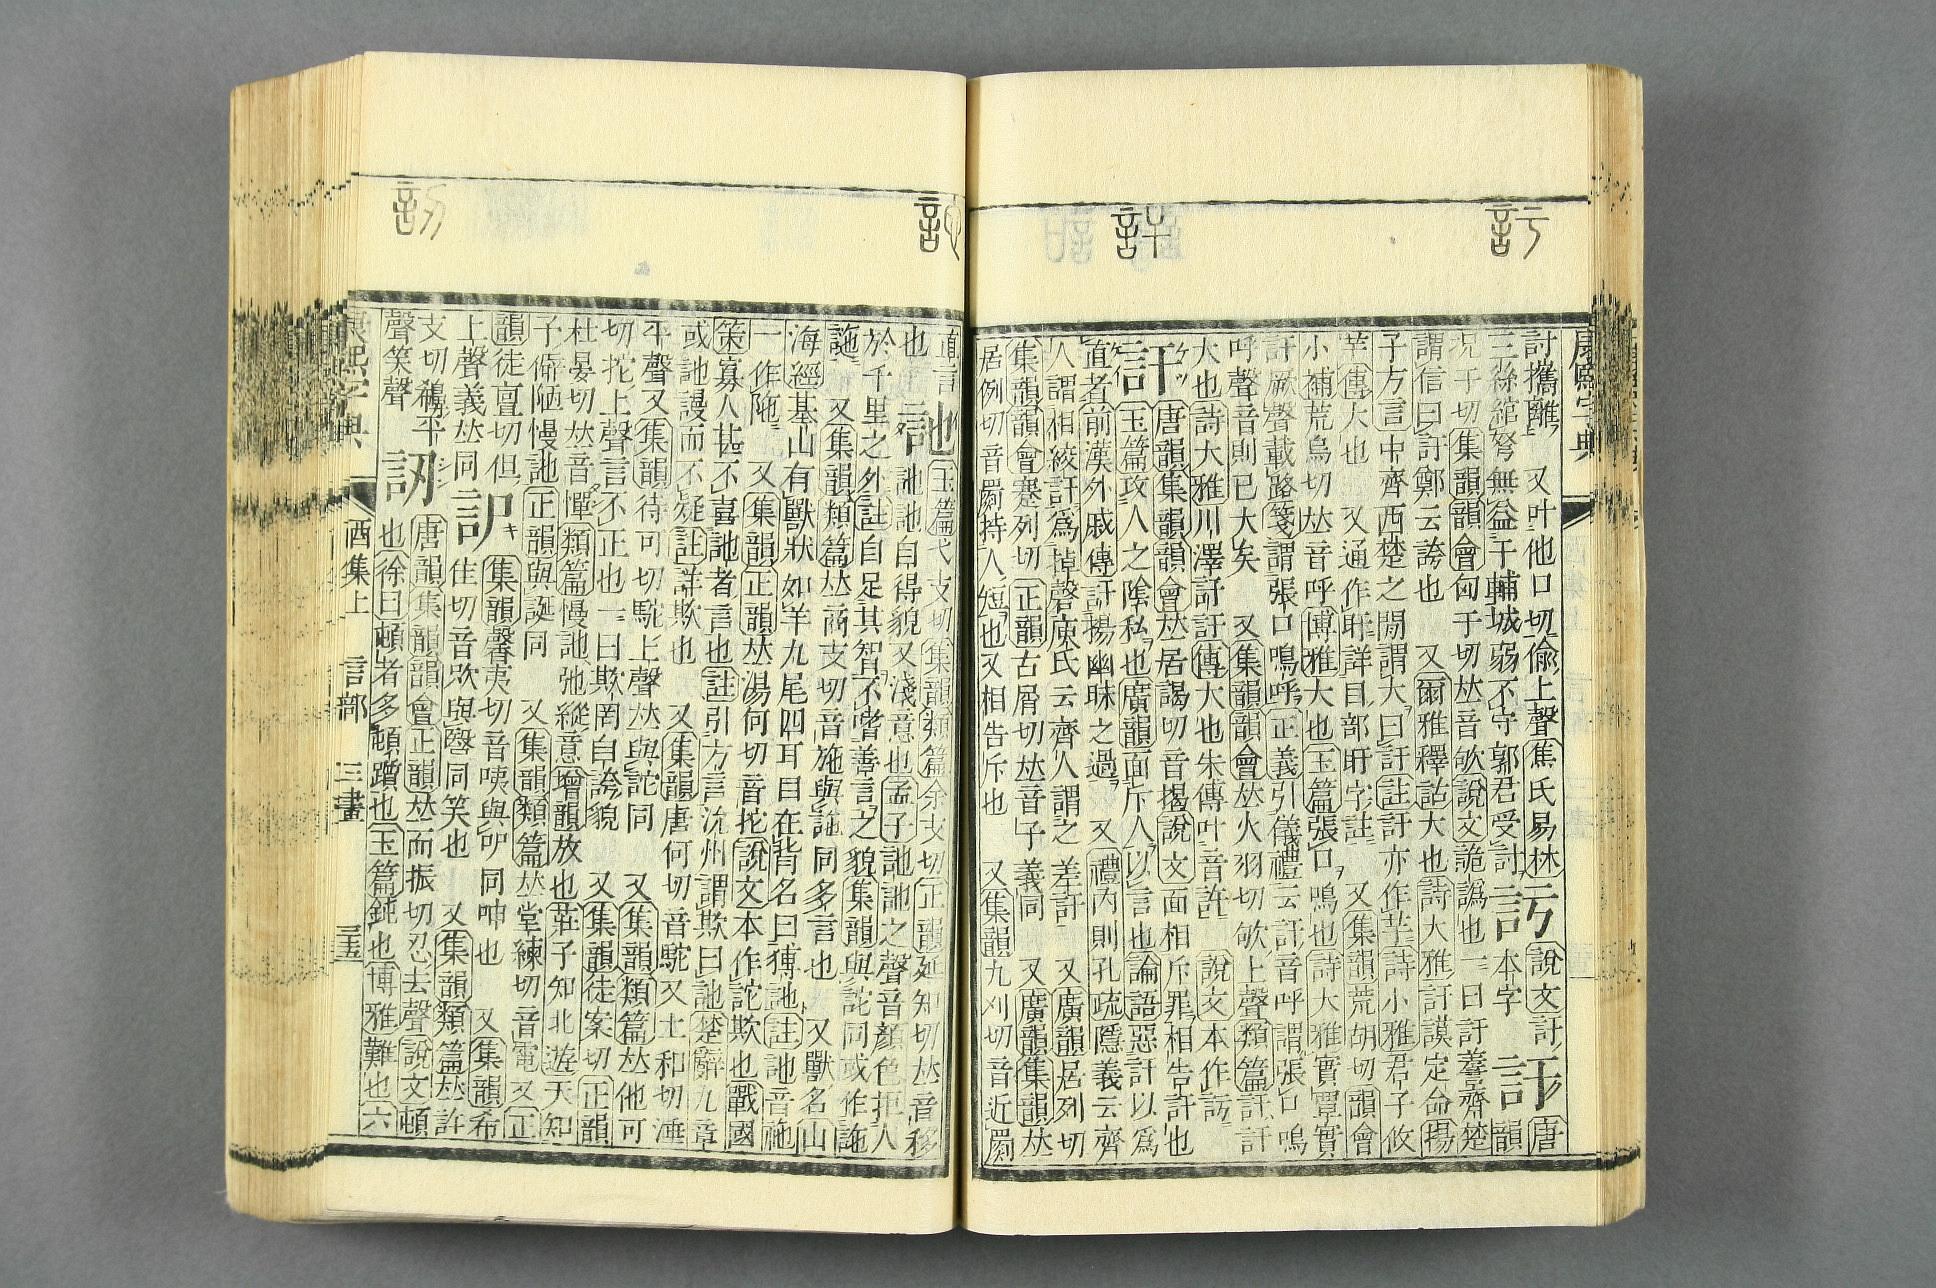 康熙字典
討攜離 又叶他口切偷上聲焦氏易林
三絲綰弩無益于輔城弱不守郭君受討 訏 本字 訏 唐
說文訏
韻
況于切集韻韻會匈于切𠀤音欨說文詭譌也一曰訏謩齊楚
謂信曰訏鄭云誇也 又爾雅釋詁大也詩大雅訏謨定命揚
子方言中齊西楚之閒謂大曰訏註訏亦作芋詩小雅君子攸
芋傳大也 又通作盱詳目部盱字註 又集韻荒胡切韻會
小補荒烏切𠀤音呼博雅大也玉篇張口鳴也詩大雅實覃實
訏厥聲載路箋謂張口鳴呼正義引儀禮云訏音呼謂張口鳴
呼聲音則已大矣 又集韻韻會𠀤火羽切欨上聲類篇訏訏
大也詩大雅川澤訏訏傳大也朱傳叶音許 說文本作䚽
訐 唐韻集韻韻會𠀤居謁切音揭說文面相斥罪相告訐也
玉篇攻人之陰私也廣韻面斥人以言也論語惡訐以爲
直者前漢外戚傳訐揚幽昧之過 又禮內則孔疏隱義云齊
人謂相絞訐爲掉磬庾氏云齊人謂之差訐 又廣韻居列切
集韻韻會蹇列切正韻古屑切𠀤音孑義同 又廣韻集韻𠀤
居例切音罽持人短也又相告斥也 又集韻九刈切音近罽
直言
也 訑 玉篇弋支切集韻類篇余支切正韻延知切𠀤音移
訑訑自得貌又淺意也孟子訑訑之聲音顏色拒人
於千里之外註自足其智不嗜善言之貌集韻與詑同或作訑
訑 又集韻類篇𠀤商支切音施與䛄同多言也 又獸名山
海經基山有獸狀如羊九尾四耳目在背名曰猼訑註訑音施
一作陁 又集韻正韻𠀤湯何切音佗說文本作詑欺也戰國
策寡人甚不喜訑者言也註引方言沇州謂欺曰訑楚辭九章
或訑謾而不疑註詳欺也 又集韻唐何切音駝又土和切涶
平聲又集韻待可切駝上聲𠀤與詑同 又集韻類篇𠀤他可
切拕上聲言不正也一曰欺罔自誇貌 又集韻徒案切正韻
杜晏切𠀤音憚類篇慢訑弛縱意增韻放也莊子知北遊天知
予僻陋慢訑正韻與誕同 又集韻類篇𠀤堂練切音電又正
韻徒亶切但上聲義𠀤同 䚷 集韻馨夷切音咦與㕧同呻也 又集韻希
佳切音䜁與䚷同笑也 又集韻類篇𠀤許
支切鵗平聲笑聲 訒 唐韻集韻韻會正韻𠀤而振切忍去聲說文頓
也徐曰頓者多頓躓也玉篇鈍也博雅難也六
康熙字典 酉集上 言部 三畫 三五